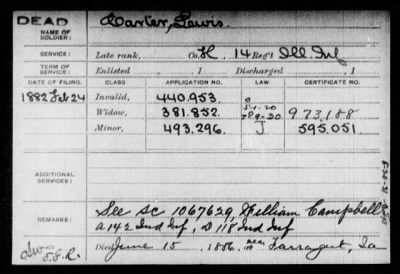 DEAD
NAME OF SOLDIER:
Carter, Lewis.
SERVICE:
Late rank, Co. H, 14 Reg't Ill Inf
TERM OF SERVICE:
Enlisted , 1 Discharged , 1
DATE OF FILING. CLASS. APPLICATION NO. LAW. CERTIFICATE NO.
1882 Feb 24 Invalid, 440.953.
Widow, 381.852 973188
Minor, 493.296. J 595.051.
ADDITIONAL SERVICES:
REMARKS:
See SC 1067629, William Campbell
A 142 Ind Inf, D 118 Ind Inf
Died June 15, 1886, near Farragut, Ia